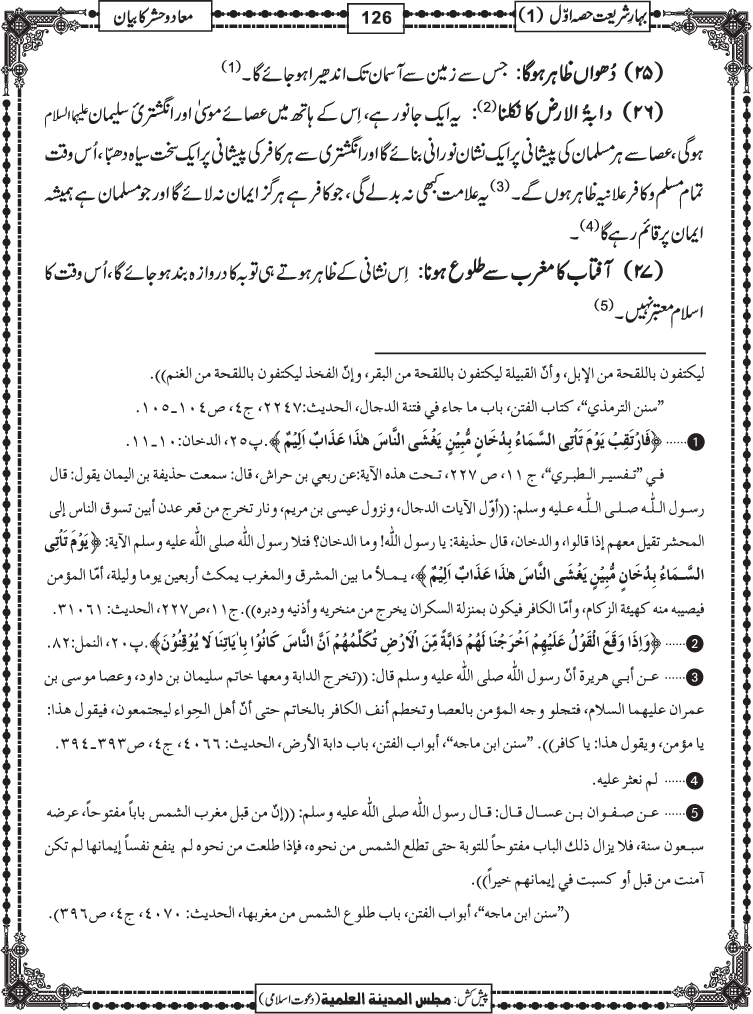 بہارِ شریعت حصہ اوّل (1)
126
معاد و حشر کا بیان
(۲۵) دُھواں ظاہر ہوگا: جس سے زمین سے آسمان تک اندھیرا ہو جائے گا۔(1)
(۲۶) دابۃ الارض کا نکلنا(2): یہ ایک جانور ہے، اِس کے ہاتھ میں عصائے موسیٰ اور انگشتریٔ سلیمان علیہما السلام
ہوگی، عصا سے ہر مسلمان کی پیشانی پر ایک نشان نورانی بنائے گا اور انگشتری سے ہر کافر کی پیشانی پر ایک سخت سیاہ دھبّا، اُس وقت
تمام مسلم و کافر علانیہ ظاہر ہوں گے۔(3) یہ علامت کبھی نہ بدلے گی، جو کافر ہے ہرگز ایمان نہ لائے گا اور جو مسلمان ہے ہمیشہ
ایمان پر قائم رہے گا(4)۔
(۲۷) آفتاب کا مغرب سے طلوع ہونا: اِس نشانی کے ظاہر ہوتے ہی توبہ کا دروازہ بند ہو جائے گا، اُس وقت کا
اسلام معتبر نہیں۔(5)
ليكتفون باللقحة من الإبل، وأنّ القبيلة ليكتفون باللقحة من البقر، وإنّ الفخذ ليكتفون باللقحة من الغنم)).
”سنن الترمذي“، كتاب الفتن، باب ما جاء في فتنة الدجال، الحديث:۲۲۴۷، ج۴، ص۱۰۴ـ۱۰۵.
1 ...... ﴿فَارْتَقِبْ يَوْمَ تَاْتِى السَّمَآءُ بِدُخَانٍ مُّبِيْنٍ يَغْشَى النَّاسَ هٰذَا عَذَابٌ اَلِيْمٌ﴾. پ۲۵، الدخان:۱۰ـ۱۱.
في ”تفسير الطبري“، ج ۱۱، ص ۲۲۷، تحت هذه الآية:عن ربعي بن حراش، قال: سمعت حذيفة بن اليمان يقول: قال
رسول اللّٰه صلى اللّٰه عليه وسلم: ((أوّل الآيات الدجال، ونزول عيسى بن مريم، ونار تخرج من قعر عدن أبين تسوق الناس إلى
المحشر تقيل معهم إذا قالوا، والدخان، قال حذيفة: يا رسول اللّٰه! وما الدخان؟ فتلا رسول اللّٰه صلى اللّٰه عليه وسلم الآية: ﴿يَوْمَ تَاْتِى
السَّمَآءُ بِدُخَانٍ مُّبِيْنٍ يَغْشَى النَّاسَ هٰذَا عَذَابٌ اَلِيْمٌ﴾، يملأ ما بين المشرق والمغرب يمكث أربعين يوما وليلة، أمّا المؤمن
فيصيبه منه كهيئة الزكام، وأمّا الكافر فيكون بمنزلة السكران يخرج من منخريه وأذنيه ودبره)). ج۱۱،ص۲۲۷، الحديث: ۳۱۰۶۱.
2 ...... ﴿وَاِذَا وَقَعَ الْقَوْلُ عَلَيْهِمْ اَخْرَجْنَا لَهُمْ دَآبَّةً مِّنَ الْاَرْضِ تُكَلِّمُهُمْ اَنَّ النَّاسَ كَانُوْا بِاٰيَاتِنَا لَا يُوْقِنُوْنَ﴾. پ۲۰، النمل:۸۲.
3 ...... عن أبي هريرة أنّ رسول اللّٰه صلى اللّٰه عليه وسلم قال: ((تخرج الدابة ومعها خاتم سليمان بن داود، وعصا موسى بن
عمران عليهما السلام، فتجلو وجه المؤمن بالعصا وتخطم أنف الكافر بالخاتم حتى أنّ أهل الحِواء ليجتمعون، فيقول هذا:
يا مؤمن، ويقول هذا: يا كافر)). ”سنن ابن ماجه“، أبواب الفتن، باب دابة الأرض، الحديث: ۴۰۶۶، ج۴، ص۳۹۳ـ۳۹۴.
4 ...... لم نعثر عليه.
5 ...... عن صفوان بن عسال قال: قال رسول اللّٰه صلى اللّٰه عليه وسلم: ((إنّ من قبل مغرب الشمس باباً مفتوحاً، عرضه
سبعون سنة، فلا يزال ذلك الباب مفتوحاً للتوبة حتى تطلع الشمس من نحوه، فإذا طلعت من نحوه لم ينفع نفساً إيمانها لم تكن
آمنت من قبل أو كسبت في إيمانهم خيراً)).
(”سنن ابن ماجه“، أبواب الفتن، باب طلوع الشمس من مغربها، الحديث: ۴۰۷۰، ج۴، ص۳۹۶).
پیش کش: مجلس المدينة العلمية (دعوت اسلامی)